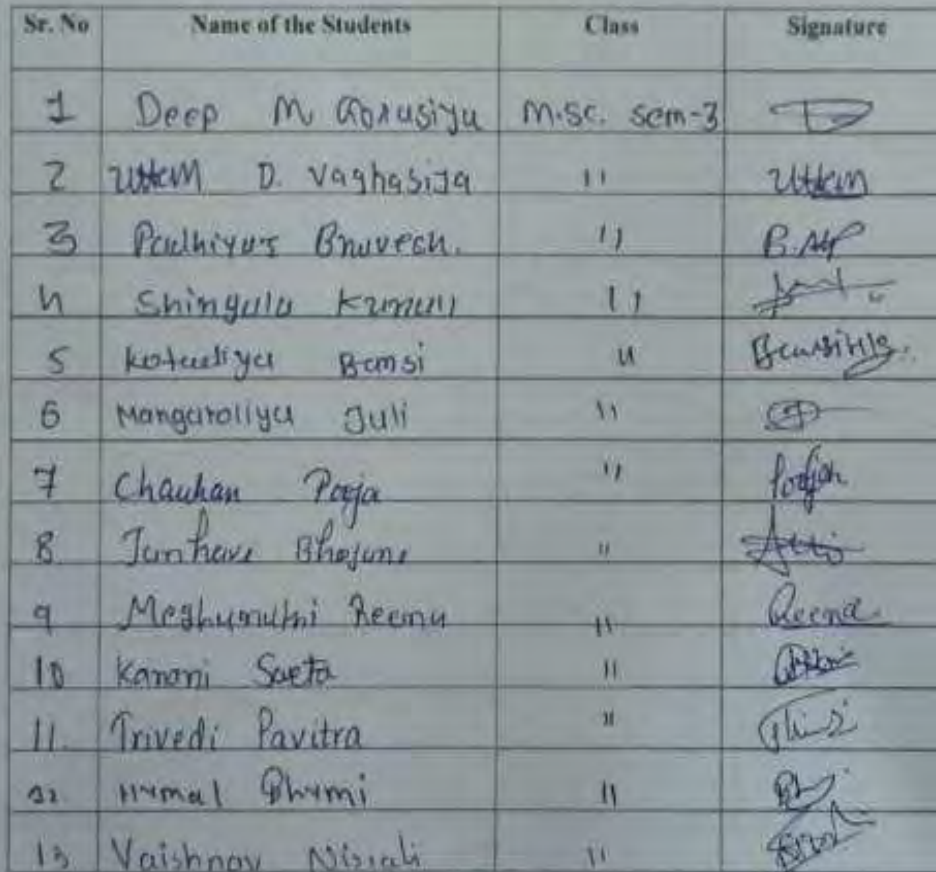 Sr. No Name of the Students Class Signature
1 Deep M Gorasiya M.Sc. Sem-3
2 Uttam D. Vaghasiya " Uttam
3 Padhiyar Bhavesh. "
4 Shingala "
5 Kotadiya Bansi "
6 Mangaroliya Juli "
7 Chauhan Pooja " Poojah
8 Janhavi Bhojani "
9 Meghunathi Reena " Reena
10 Kanani "
11. Trivedi Pavitra "
12 Bhumi "
13 Vaishnav "